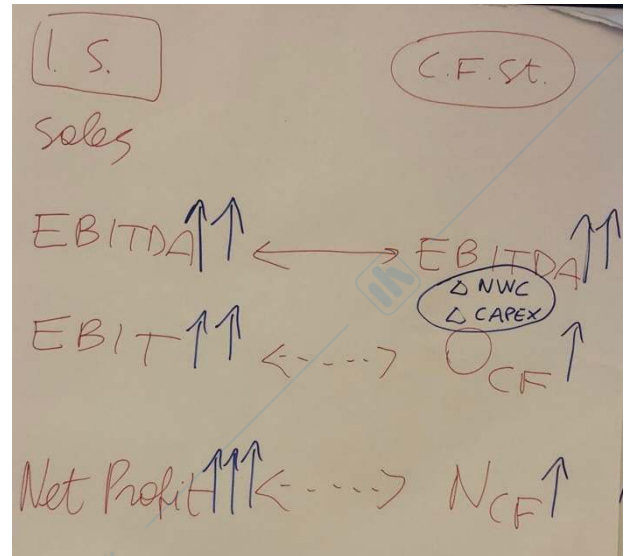 I. S. C.F.St.
Sales
EBITDA↑↑ ⟷ EBITDA↑↑
Δ NWC
Δ CAPEX
EBIT↑↑ <----> OCF↑
Net Profit↑↑↑ <----> NCF↑